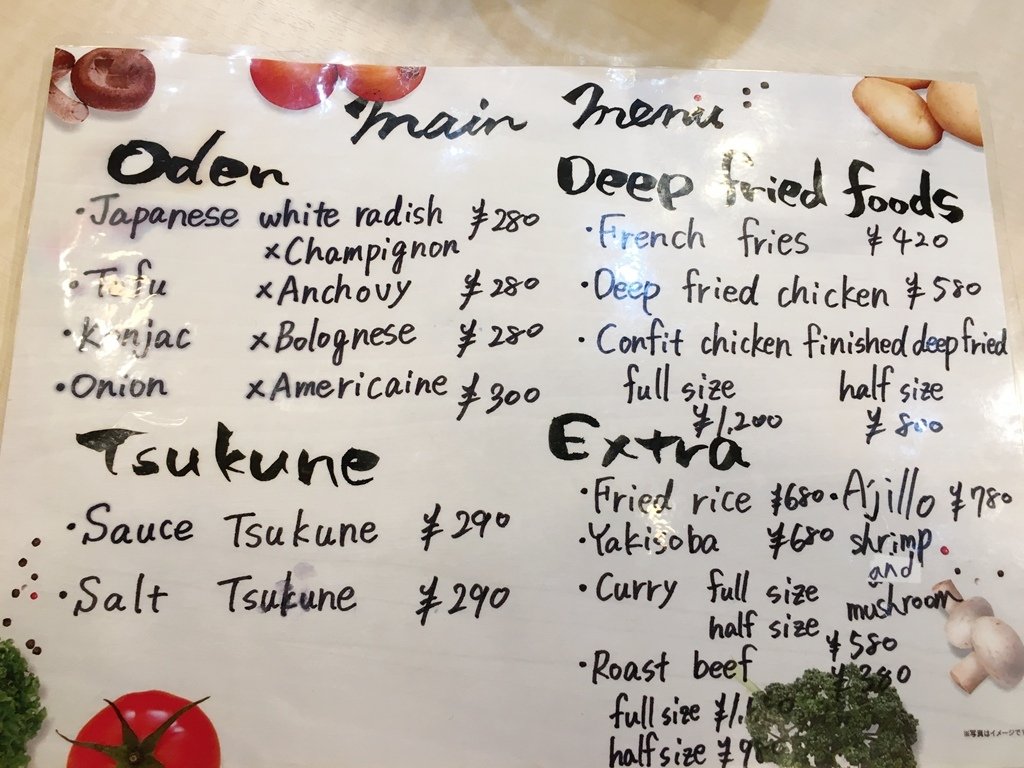 Main Menu
Oden
・Japanese white radish ¥280
×Champignon
・Tofu ×Anchovy ¥280
・Konjac ×Bolognese ¥280
・Onion ×Americaine ¥300
Tsukune
・Sauce Tsukune ¥290
・Salt Tsukune ¥290
Deep fried foods
・French fries ¥420
・Deep fried chicken ¥580
・Confit chicken finished deep fried
full size half size
¥1,200 ¥800
Extra
・Fried rice ¥680 ・Ajillo ¥780
・Yakisoba ¥680 shrimp
and
mushroom
・Curry full size
half size
¥580
・Roast beef
full size
half size
※写真はイメージで